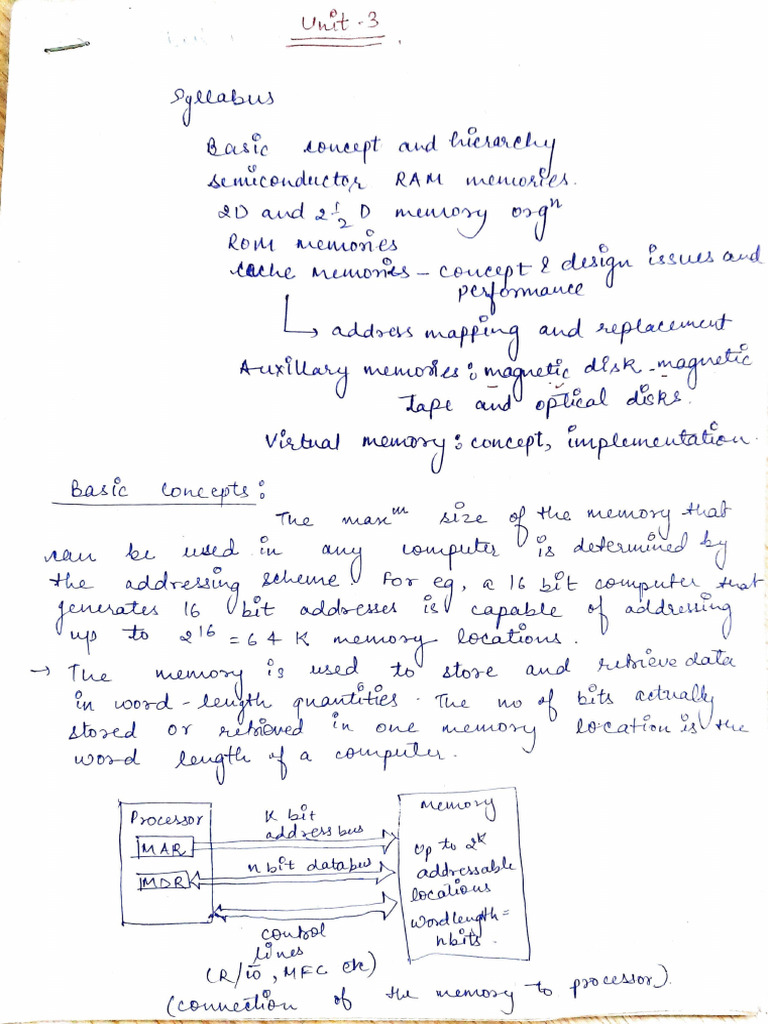 Unit - 3
Syllabus
Basic concept and hierarchy
semiconductor RAM memories.
2D and 2 1/2 D memory orgⁿ
ROM memories
cache memories - concept & design issues and
performance
↳ address mapping and replacement
Auxillary memories: magnetic disk - magnetic
tape and optical disks.
Virtual memory: concept, implementation.
Basic concepts:
The maxᵐ size of the memory that
can be used in any computer is determined by
the addressing scheme. For eg, a 16 bit computer that
generates 16 bit addresses is capable of addressing
up to 2¹⁶ = 64 K memory locations.
→ The memory is used to store and retrieve data
in word-length quantities. The no of bits actually
stored or retrieved in one memory location is the
word length of a computer.
Processor
MAR
MDR
K bit
address bus
n bit databus
control
lines
(R/w̅, MFC etc)
Memory
Up to 2ᴷ
addressable
locations
wordlength =
n bits.
(connection of the memory to processor).